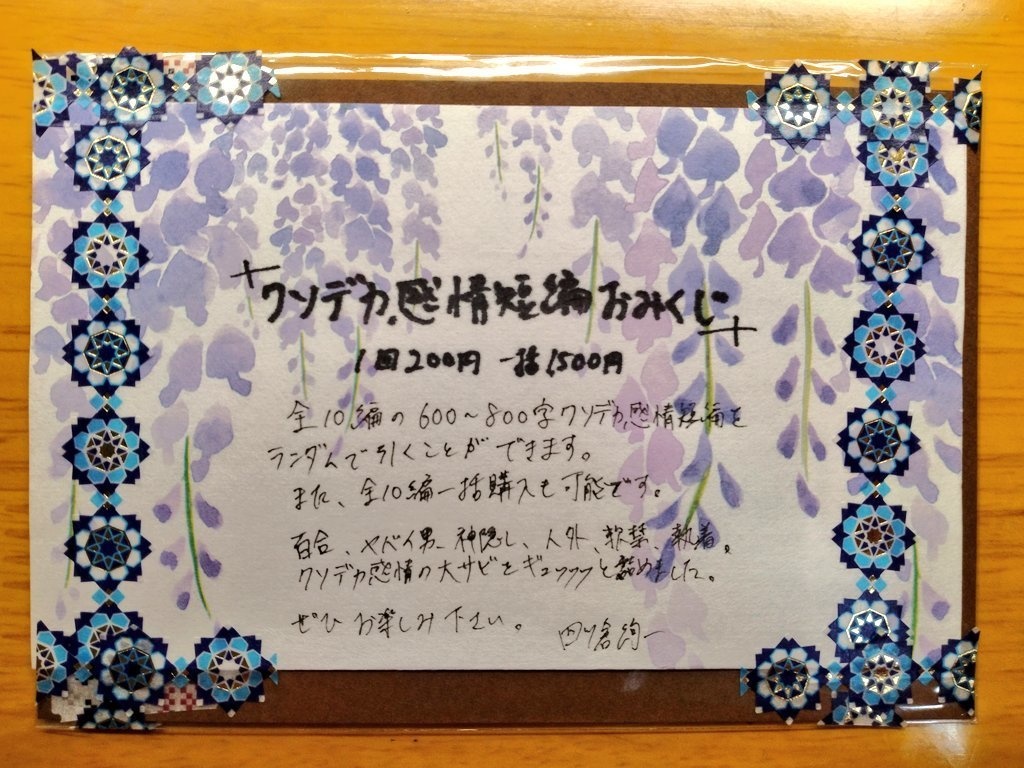 クソデカ感情短編おみくじ
1回200円 一括1500円
全10編の600～800字クソデカ感情短編を
ランダムで引くことができます。
また、全10編一括購入も可能です。
百合、ヤバイ男、神隠し、人外、軟禁、執着。
クソデカ感情の大サビをギュッッッと詰めました。
ぜひお楽しみ下さい。